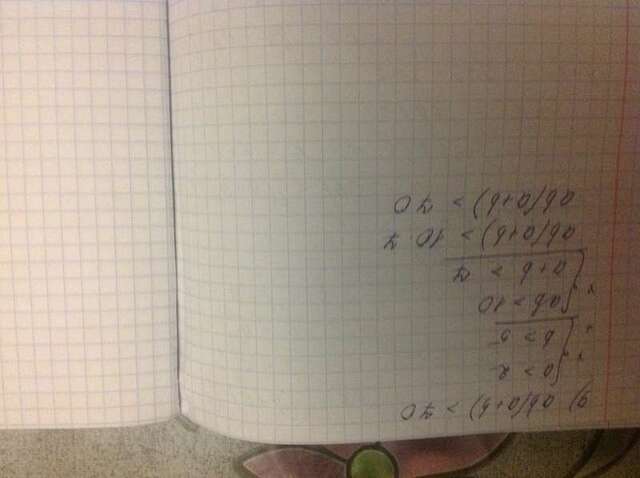 а) ab(a+b) > 70
{ a > 2
b > 5
{ ab > 10
a+b > 7
ab(a+b) > 10·7
ab(a+b) > 70